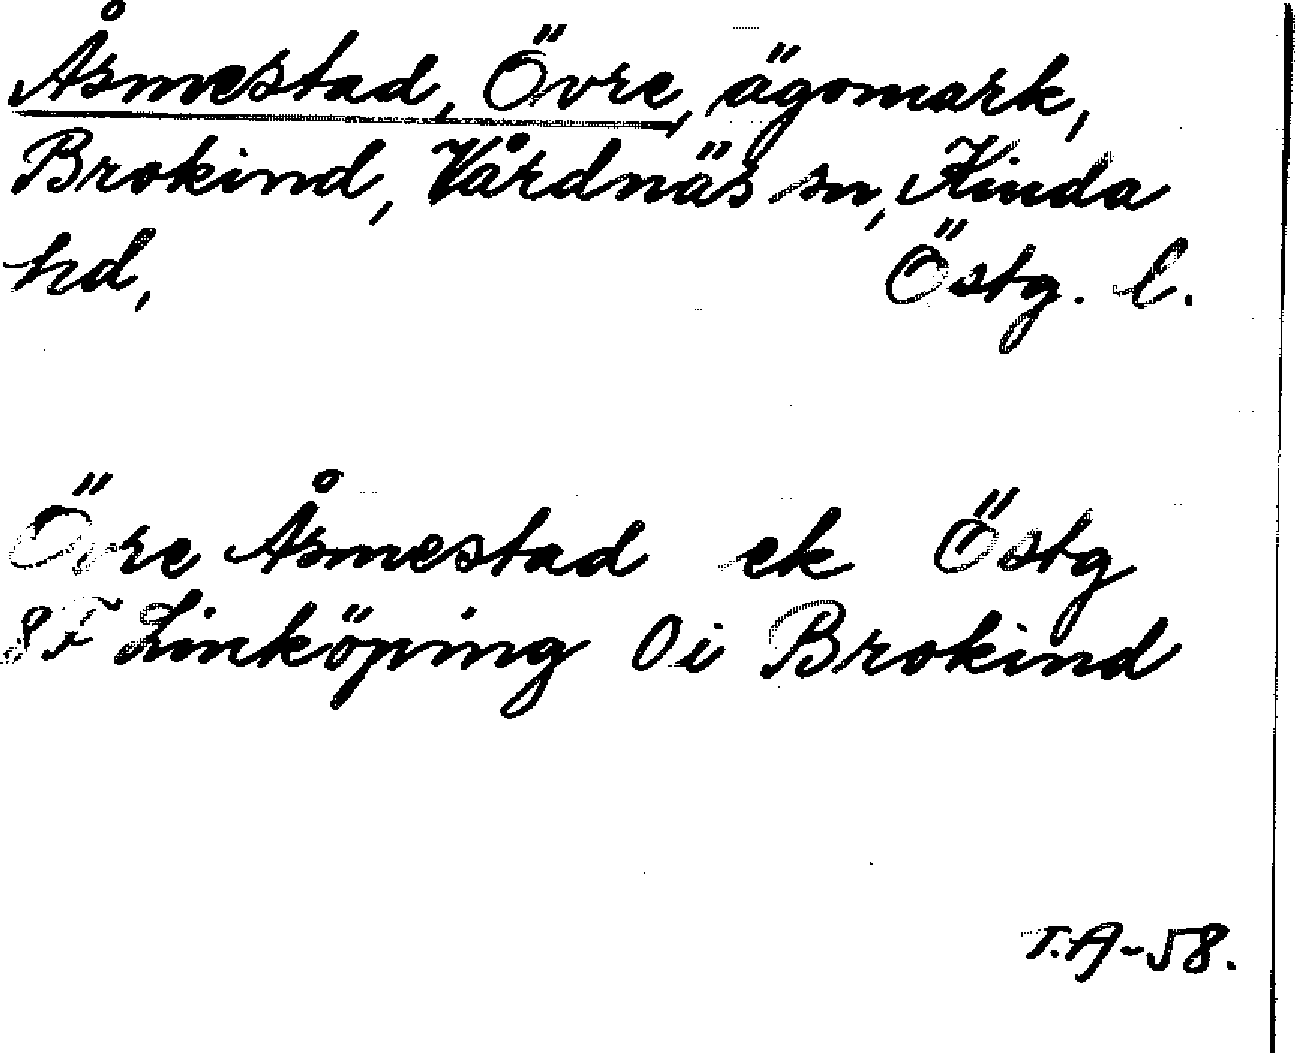 Åsmestad, Övre, ägomark,
Brokind, Vårdnäs sn, Kinda
hd, Östg. l.
Övre Åsmestad ek Östg
8F Linköping Oi Brokind
T.A-58.